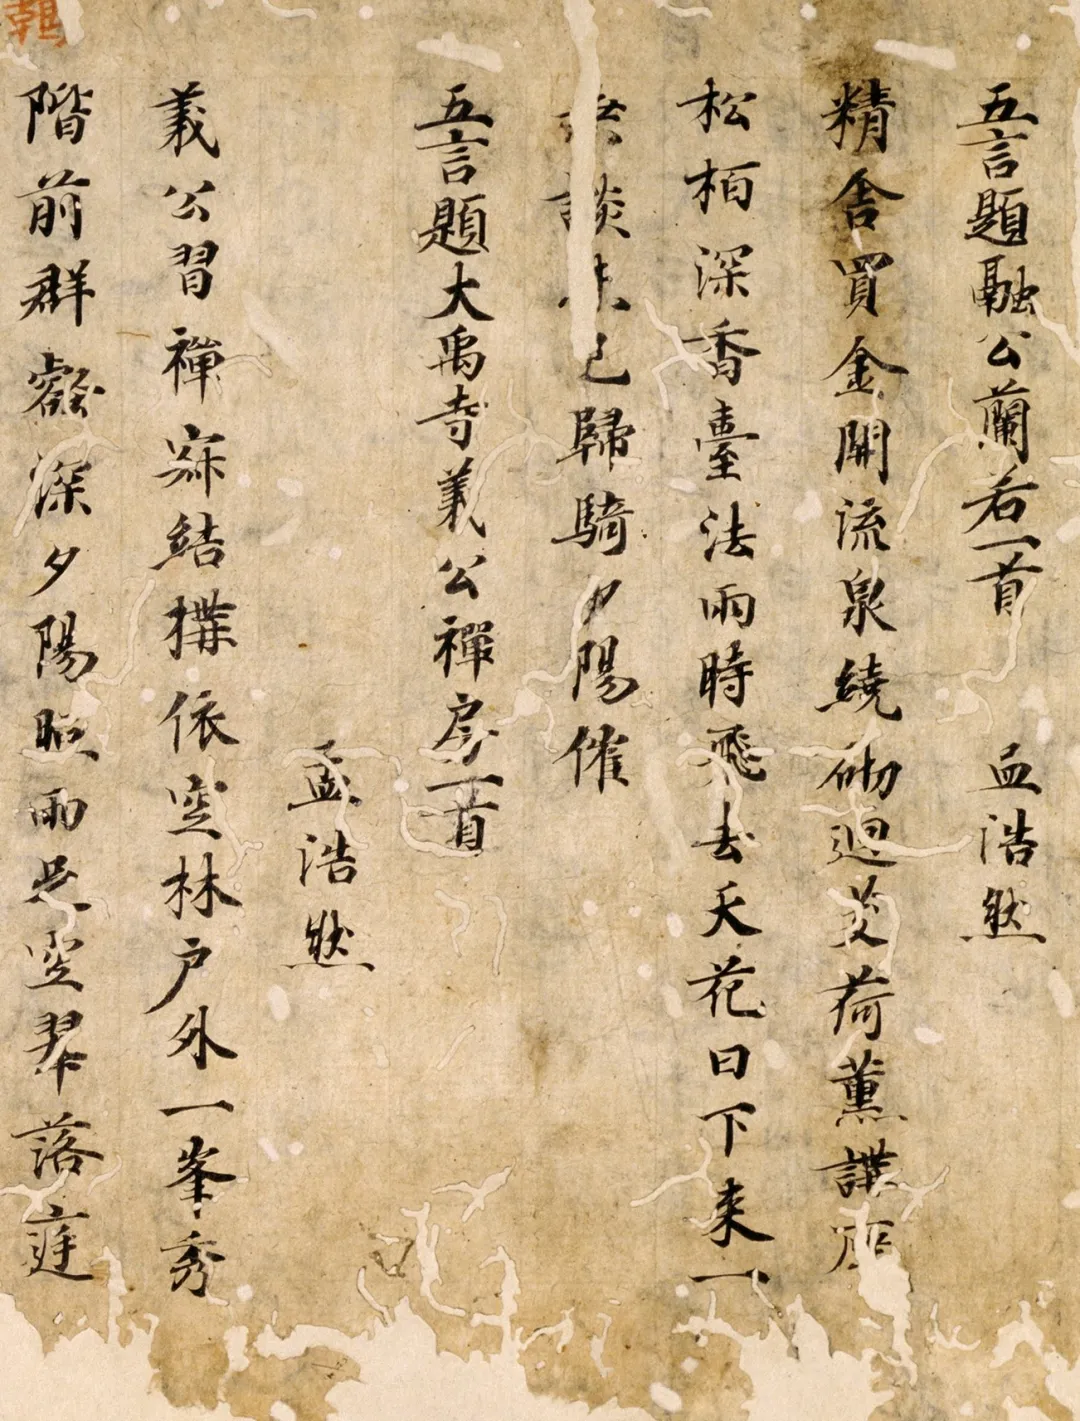 五言題融公蘭若一首 孟浩然
精舍買金開流泉繞砌迴芰荷薰講座
松栢深香臺法雨時飛去天花日下來一
談未已歸騎夕陽催
五言題大禹寺義公禪房一首
孟浩然
義公習禪寂結構依空林戶外一峯秀
階前群壑深夕陽照雨足空翠落庭